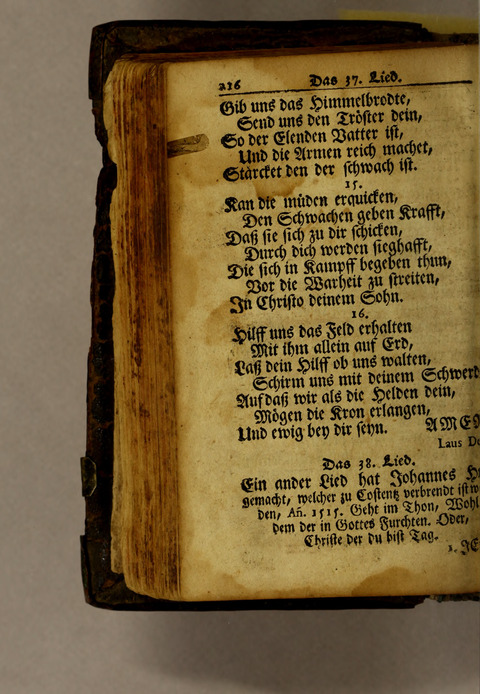 216 Das 37. Lied.
Gib uns das Himmelbrodte,
Send uns den Tröster dein,
So der Elenden Vatter ist,
Und die Armen reich machet,
Stärcket den der schwach ist.
15.
Kan die müden erquicken,
Den Schwachen geben Krafft,
Daß sie sich zu dir schicken,
Durch dich werden sieghafft,
Die sich in Kampff begeben thun,
Vor die Warheit zu streiten,
In Christo deinem Sohn.
16.
Hilff uns das Feld erhalten
Mit ihm allein auf Erd,
Laß dein Hilff ob uns walten,
Schirm uns mit deinem Schwerd
Auf daß wir als die Helden dein,
Mögen die Kron erlangen,
Und ewig bey dir seyn. AME
Laus De
Das 38. Lied.
Ein ander Lied hat Johannes Hu
gemacht, welcher zu Costentz verbrendt ist w
den, Añ. 1515. Geht im Thon, Wohl
dem der in Gottes Furchten. Oder,
Christe der du bist Tag.
1. JE